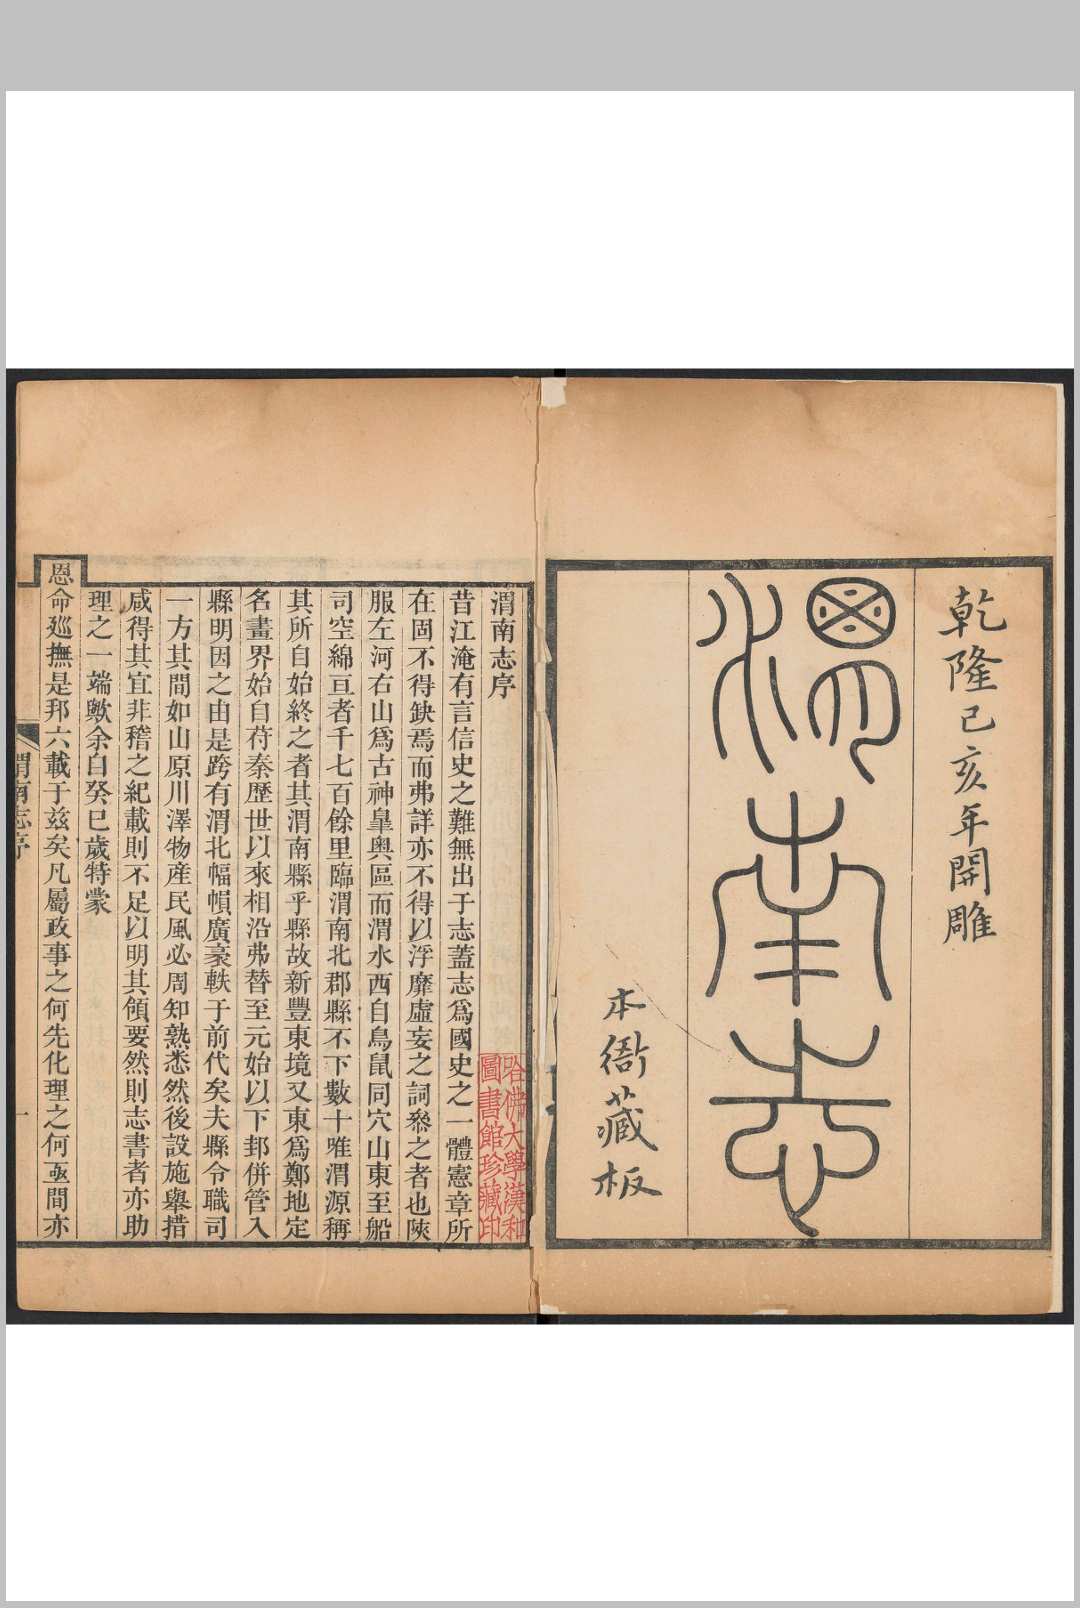 乾隆己亥年開雕
渭南志
本衙藏板
渭南志序
昔江淹有言信史之難無出于志蓋志爲國史之一體憲章所
在固不得缺焉而弗詳亦不得以浮靡虛妄之詞叅之者也陝
服左河右山爲古神臯奥區而渭水西自鳥鼠同穴山東至船
司空綿亘者千七百餘里臨渭南北郡縣不下數十唯渭源稱
其所自始終之者其渭南縣乎縣故新豐東境又東爲鄭地定
名畫界始自苻秦歷世以來相沿弗替至元始以下邽併管入
縣明因之由是跨有渭北幅幀廣袤軼于前代矣夫縣令職司
一方其間如山原川澤物産民風必周知熟悉然後設施舉措
咸得其宜非稽之紀載則不足以明其領要然則志書者亦助
理之一端歟余自癸巳歲特蒙
恩命廵撫是邦六載于兹矣凡屬政事之何先化理之何亟間亦
渭南志序
一
哈佛大學漢和
圖書館珍藏印